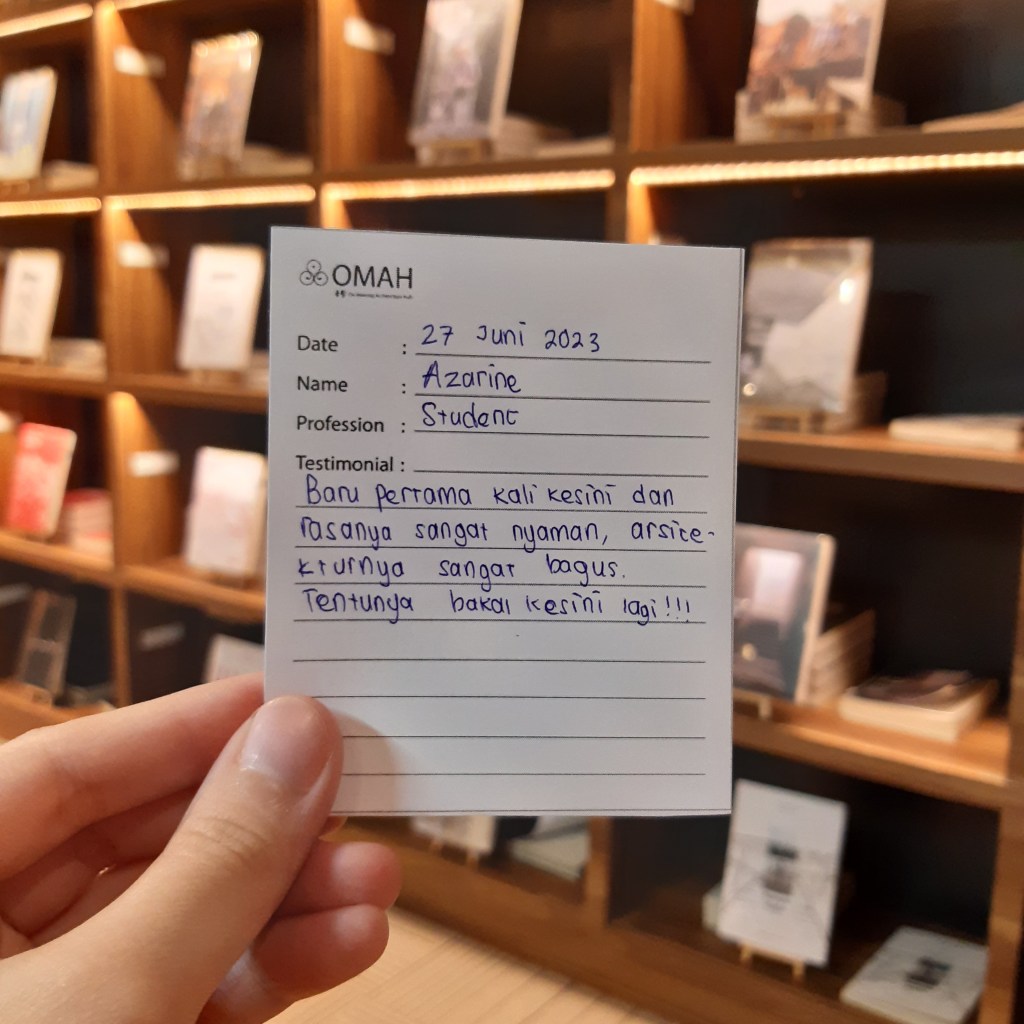 OMAH
Date : 27 Juni 2023
Name : Azarine
Profession : Student
Testimonial :
Baru pertama kali kesini dan
rasanya sangat nyaman, arsite-
kturnya sangat bagus.
Tentunya bakal kesini lagi!!!